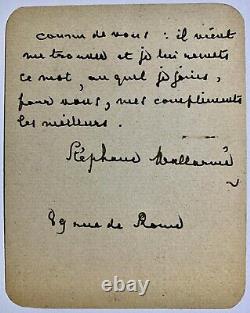 connu de vous : il vient
me trouver et je lui remets
ce mot, auquel je joins,
pour vous, mes compliments
les meilleurs.
Stéphane Mallarmé
89 rue de Rome
hillcountryantiques.com